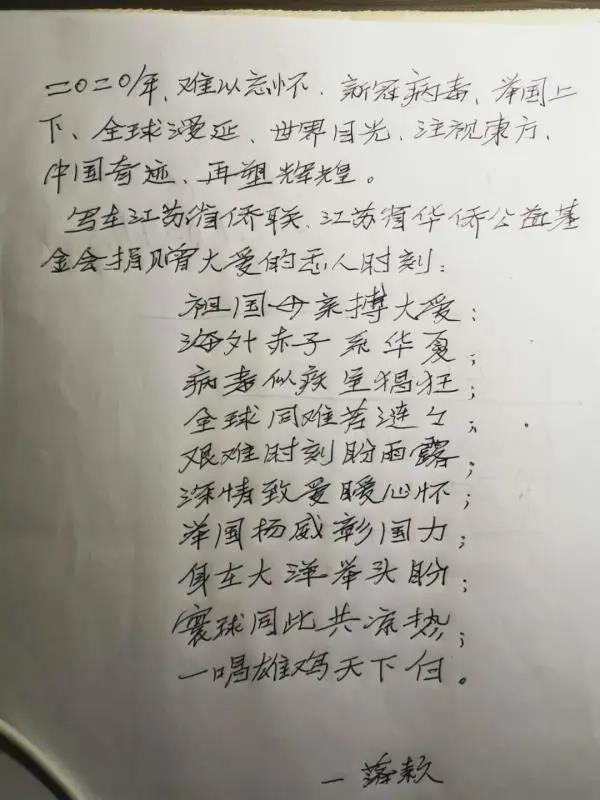 二〇二〇年、难以忘怀、新冠病毒、举国上
下、全球漫延、世界目光、注视东方、
中国奇迹、再塑辉煌。
写在江苏省侨联、江苏省华侨公益基
金会捐赠大爱的 人时刻:
祖国母亲搏大爱:
海外赤子系华夏;
病毒似疾呈猖狂;
全球同难若涟 ;
艰难时刻盼雨露;
深情致爱暖心怀;
举国扬威彰国力;
身在大洋举头盼;
寰球同此共凉势;
一唱雄鸡天下白。
一落款